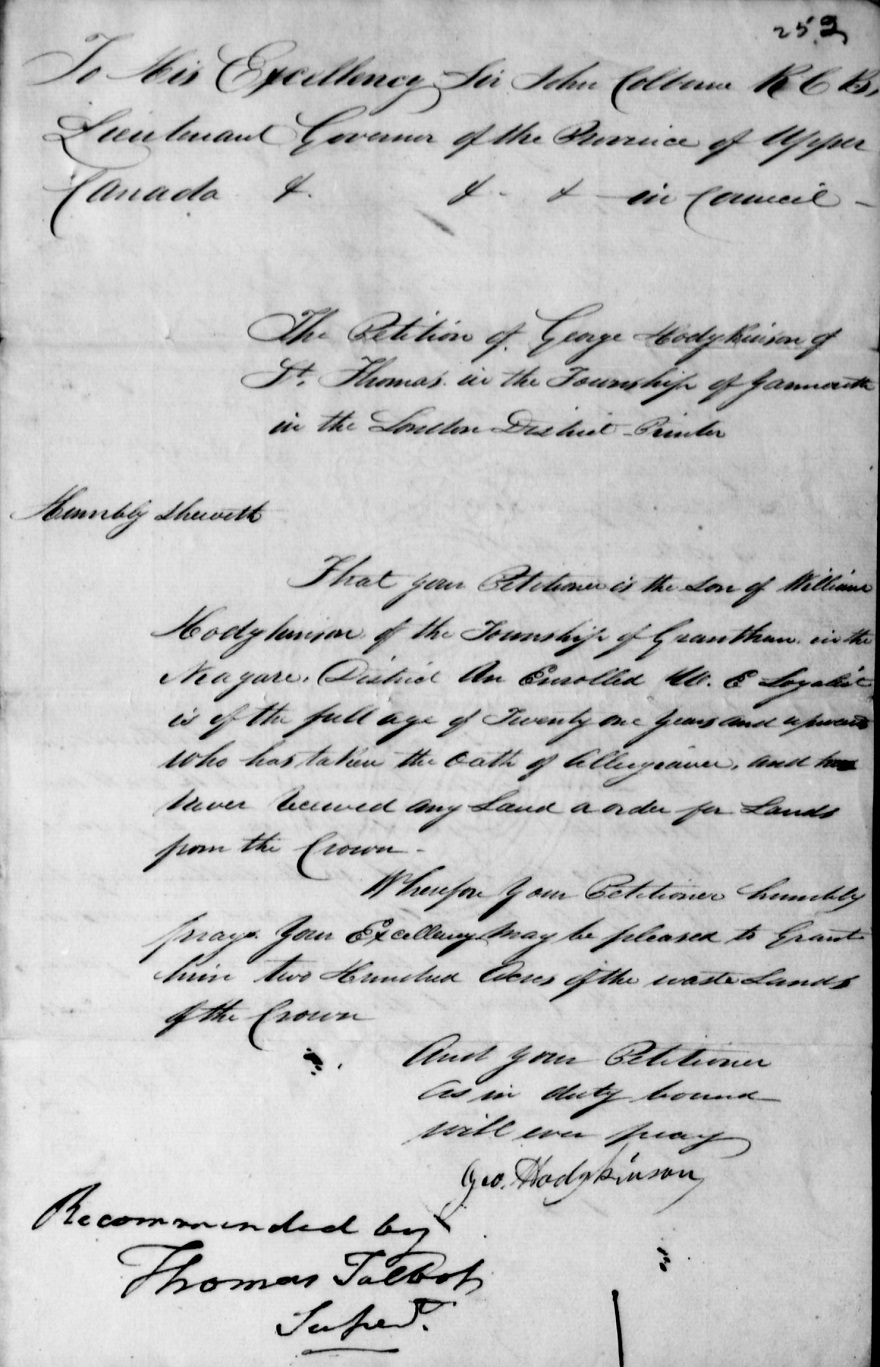 252
To His Excellency Sir John Colborne K C B,
Lieutenant Governor of the Province of Upper
Canada & & - & - in Council -
The Petition of George Hodgkinson of
St. Thomas in the Township of Yarmouth
in the London District - Printer
Humbly Sheweth
That your Petitioner is the Son of William
Hodgkinson of the Township of Grantham in the
Niagara District An Enrolled U. E Loyalist
is of the full age of Twenty one years and upwards
who has taken the Oath of Allegiance, and
never received any Land or order for Lands
from the Crown -
Wherefore Your Petitioner humbly
prays Your Excellency may be pleased to Grant
him two Hundred Acres of the waste Lands
of the Crown
And your Petitioner
as in duty bound
will ever pray
Geo. Hodgkinson
Recommended by
Thomas Talbot
Supert.